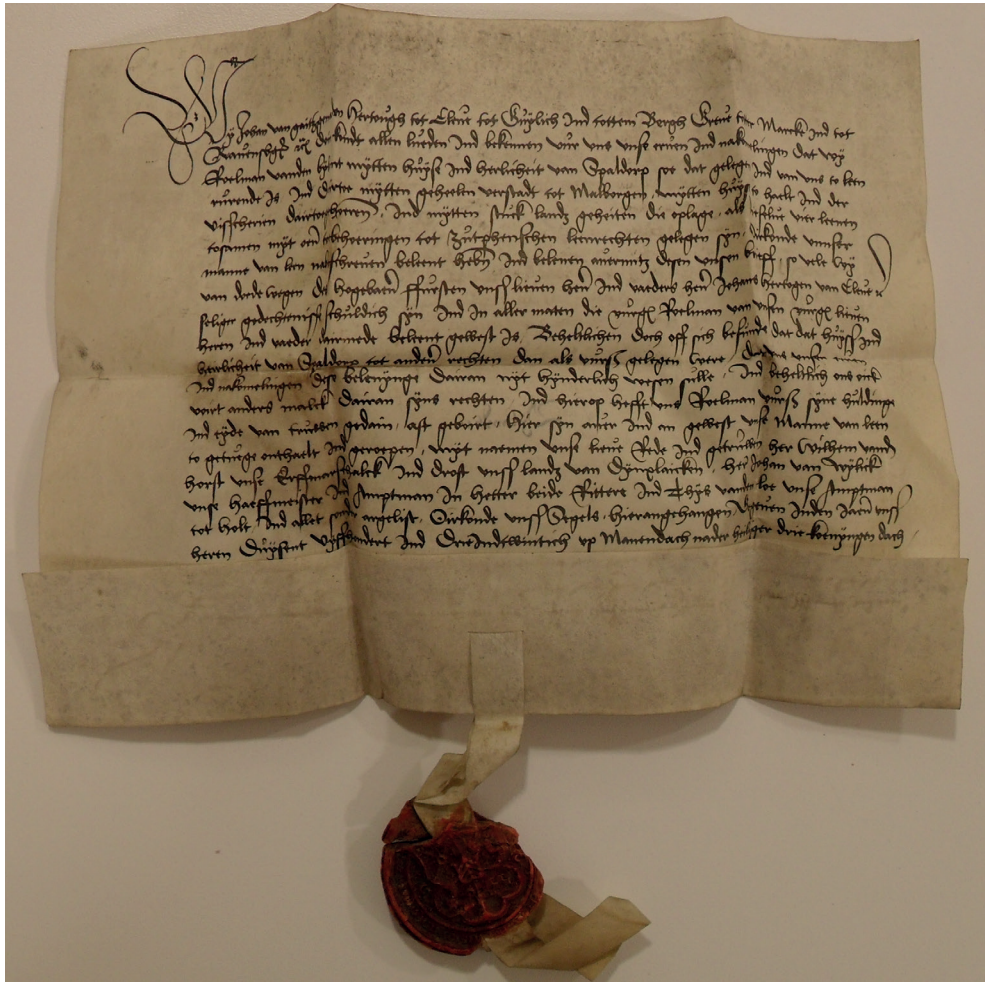 Wy Johan van gaitz genaden Hertough tot Cleue tot Guylich Ind tottem Bergh Greue Marcke Ind tot
Rauensbergh doen kundt allen lueden Ind bekennen vur vns vnse eruen Ind nakomelingen dat wy
Roelman vanden mytten Huyse Ind herlicheit van Spaldorp soe dat gelegen Ind van vns to leen
rurende Is Ind mytten geheelen verstadt tot Malborgen, mytten huyse haelt Ind der
visscherien Ind mytten stuck landz geheiten die oplage, als vier leenen
tosamen myt oren tobehoeringen tot Zutphenschen leenrechten gelegen syn, oirkonde vnnser
manne van leen naschreuen beleent hebn Ind belenen auermitz desen vnsen brieff, so vele Wy
van dode wegen des hogebaren ffursten vnss lieuen hern Ind vaeders hern Johans hertogen van Cleue
seliger gedechteniss schuldich syn Ind In aller maten die vurgen Roelman van vnsen vurgen lieuen
heren Ind vaeder dairmede beleent gewest Is. Beheltlichen doch off sich befunde dat dat huyss Ind
herlicheit van Spaldorp tot anderen rechten dan als vurss gelegen were, vnsen
Ind nakomelingen dese beleynynge dairan nyt hynderlich wesen sulle, Ind beheltlich ons onck
vort anders malck dairan syns rechten Ind hierop hefft vns Roelman vurss syne huldinge
Ind eyde van truwen gedain, ast geboirt, Hier syn auer Ind an gewest vnse Manne van leen
to getuege onthaelt Ind geroepen, myt naemen vnse lieue Rede Ind getruwen her Wilhem vander
horst vnse Erffmarschalck Ind Drost vnss landz van Dynslacken, her Johan van Wylick
vnse haeffmeister Ind Amptman In Hetter beide Rittere Ind Thys vander loe vnse Amptman
tot holt, Ind allet sonder argelist, Oirkonde vnss Segels hierangehangen Gegeuen Inden Jaeren vnss
heren Duysent Vyffhondert Ind Drieindtwintich vp Manendach nader heiliger drie koenyngen dach